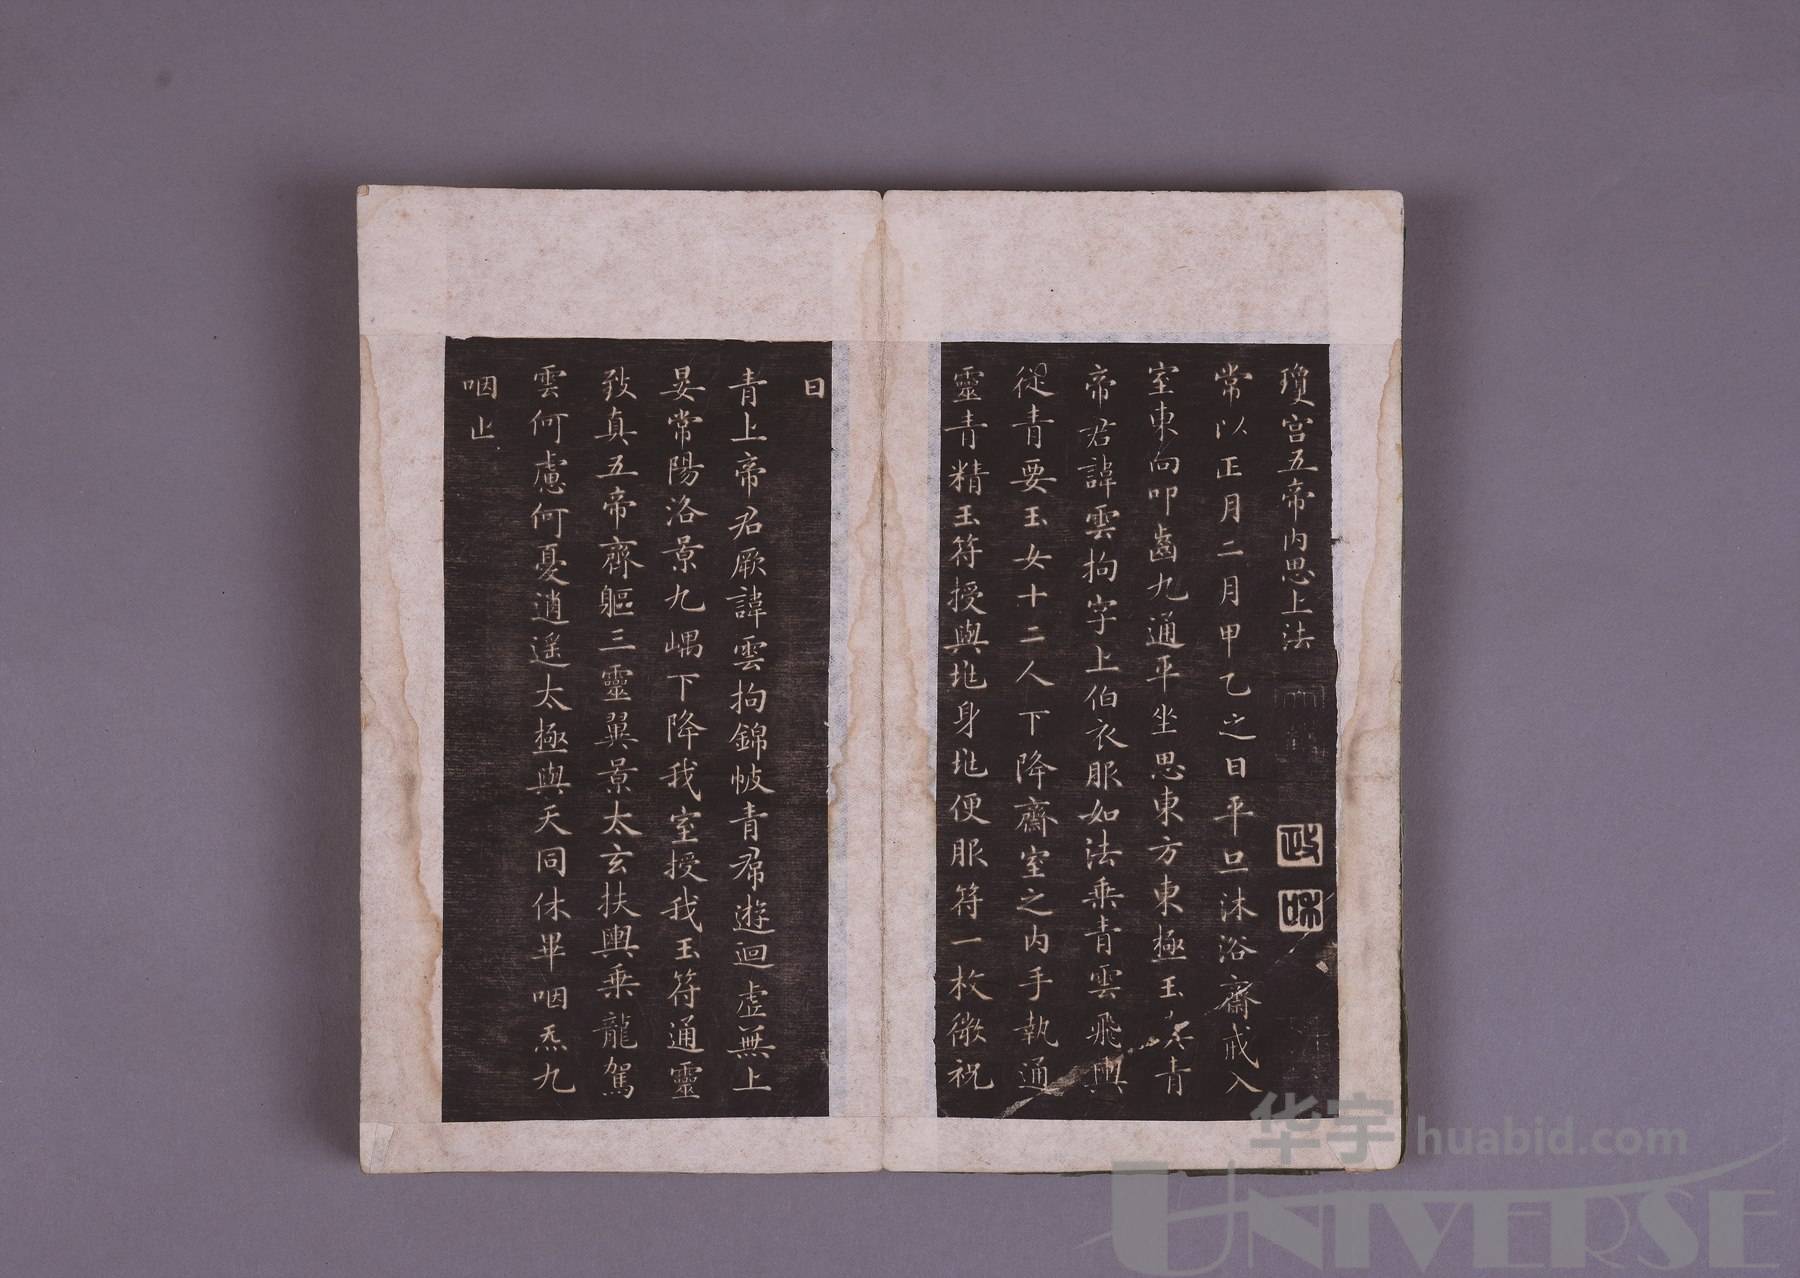 瓊宮五帝內思上法
政
和
常以正月二月甲乙之日平旦沐浴齋戒入
室東向叩齒九通平坐思東方東極玉真青
帝君諱雲拘字上伯衣服如法乘青雲飛輿
從青要玉女十二人下降齋室之內手執通
靈青精玉符授與地身地便服符一枚微祝
曰
青上帝君厥諱雲拘錦帔青帬遊迴虛無上
晏常陽洛景九嵎下降我室授我玉符通靈
致真五帝齊軀三靈翼景太玄扶輿乘龍駕
雲何慮何憂逍遙太極與天同休畢咽炁九
咽止
华宇 huabid.com
UNIVERSE